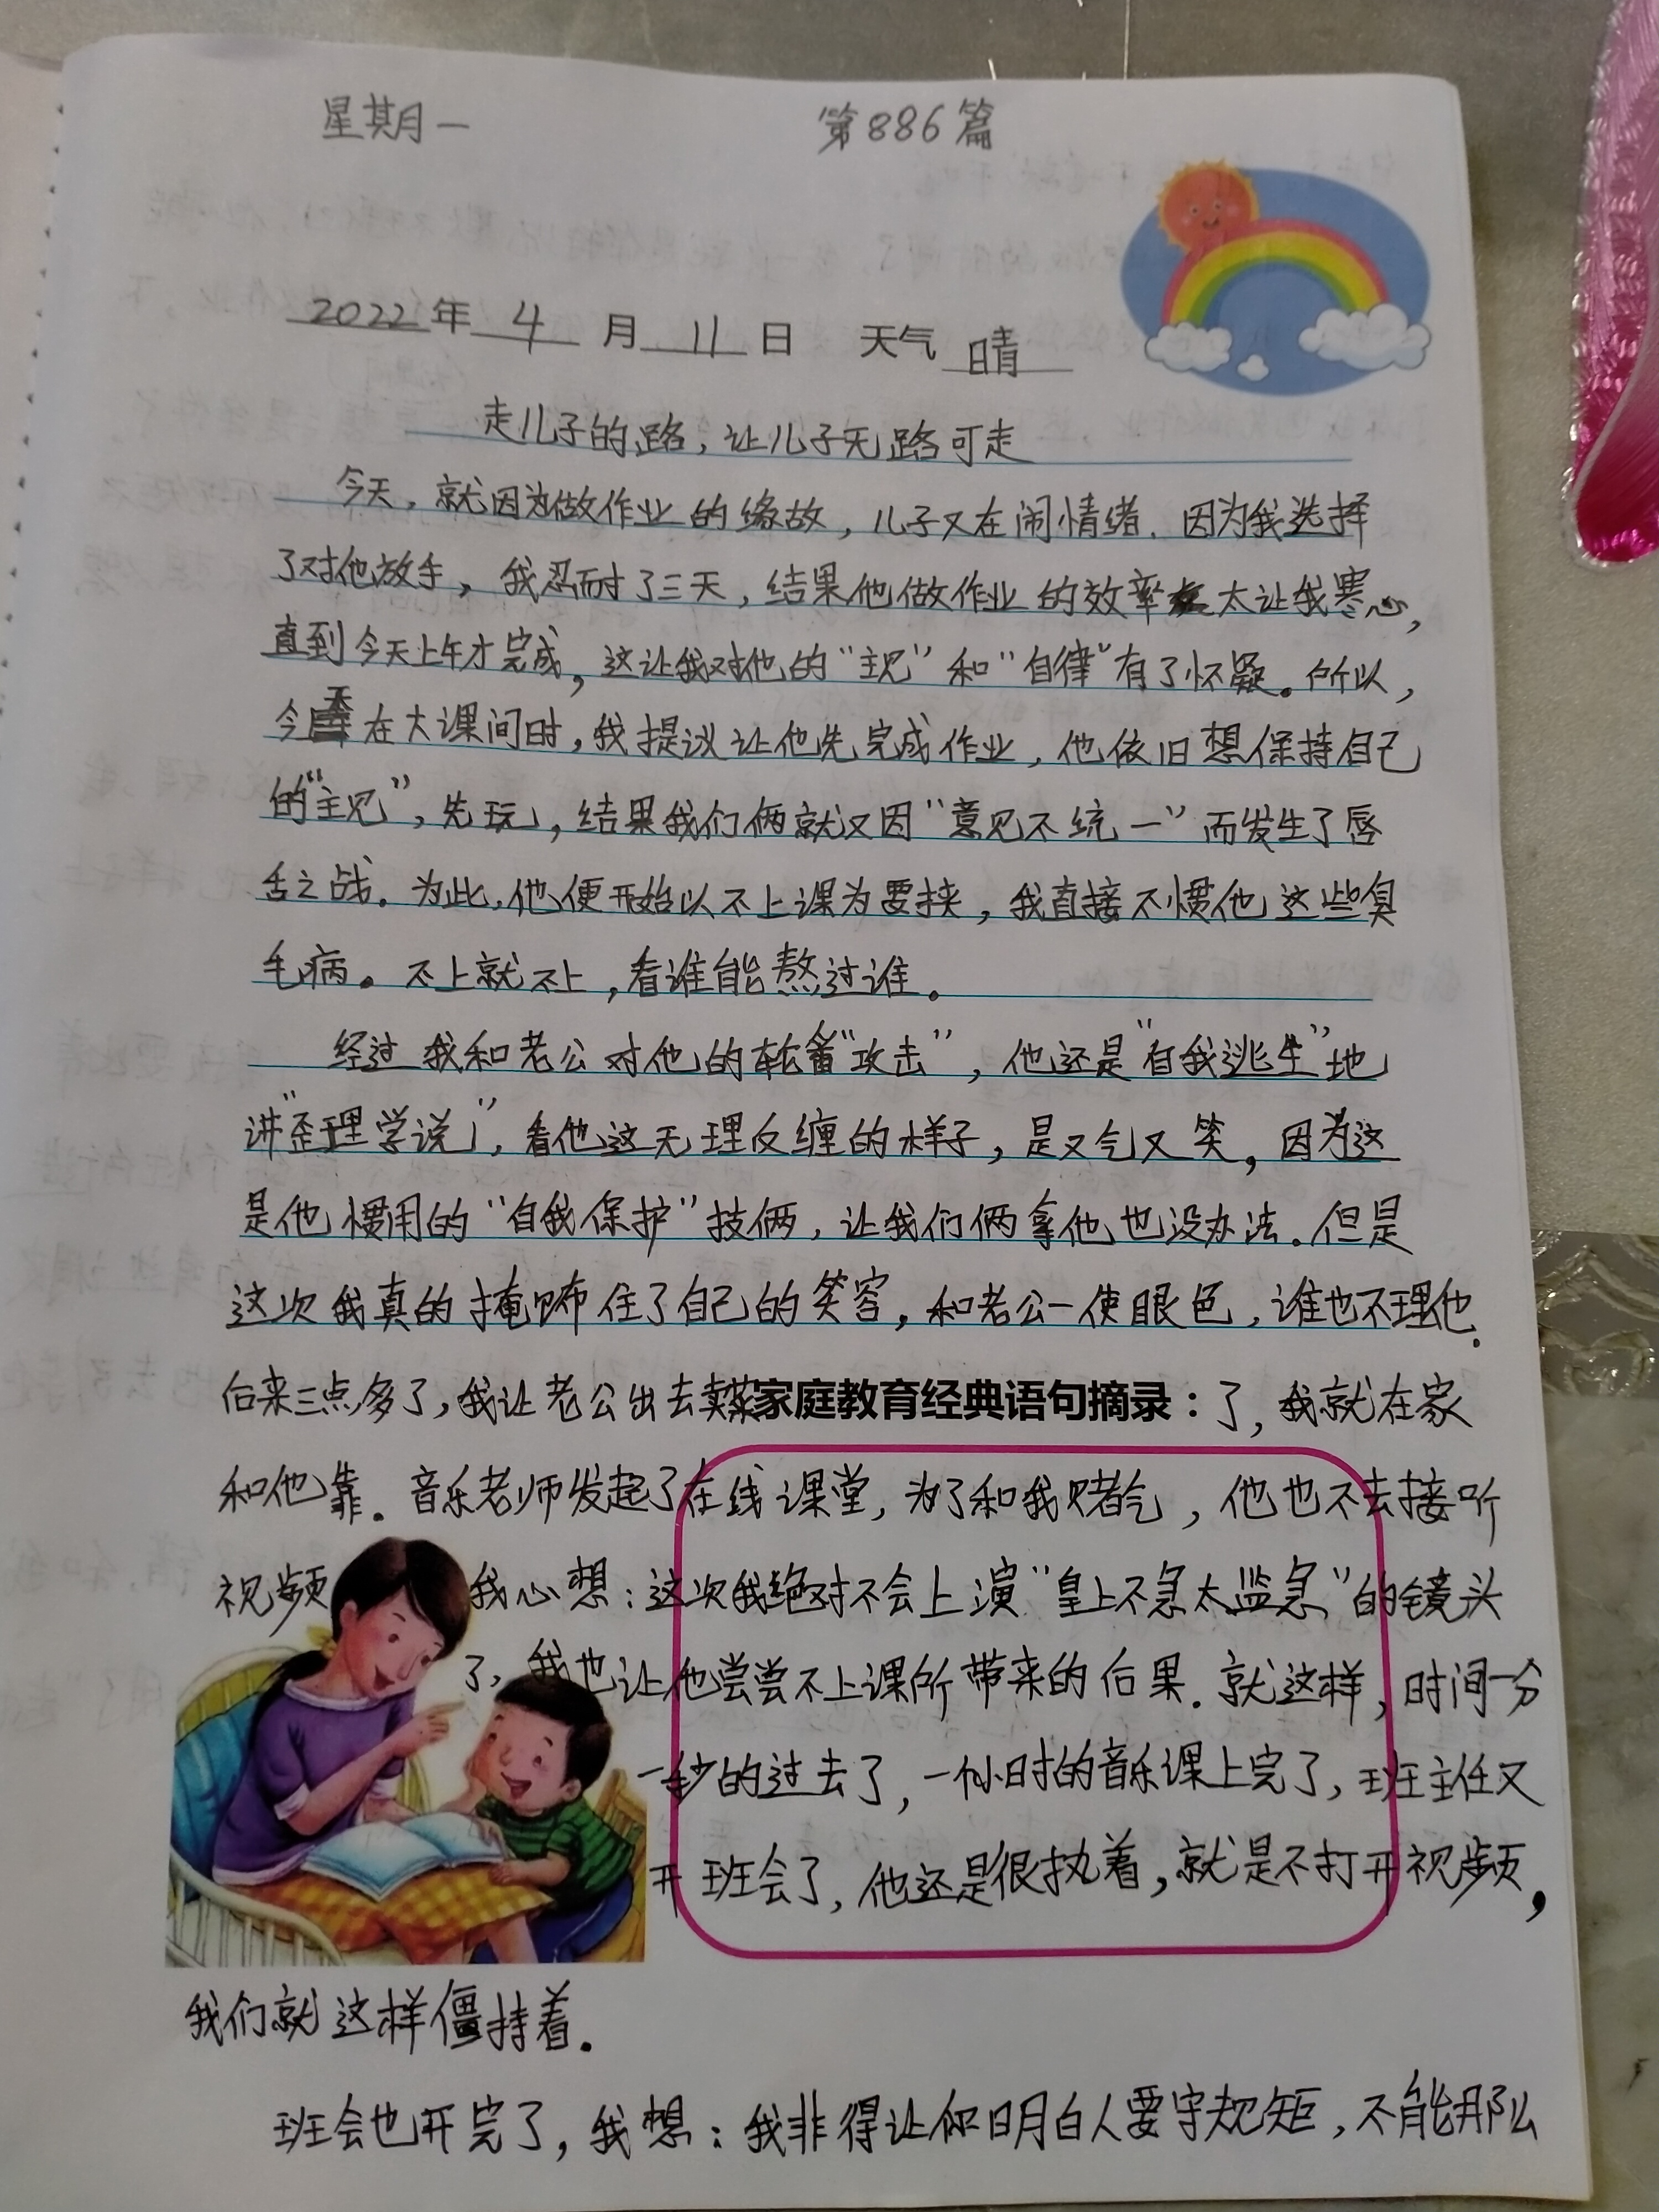 星期一 第886篇
2022年 4 月 11 日 天气 晴
走儿子的路，让儿子无路可走
今天，就因为做作业的缘故，儿子又在闹情绪．因为我选择
了对他放手，我忍耐了三天，结果他做作业的效率太让我寒心，
直到今天上午才完成，这让我对他的“主见”和“自律”有了怀疑。所以，
今天在大课间时，我提议让他先完成作业，他依旧想保持自己
的“主见”，先玩，结果我们俩就又因“意见不统一”而发生了唇
舌之战。为此，他便开始以不上课为要挟，我直接不惯他这些臭
毛病。不上就不上，看谁能熬过谁。
经过我和老公对他的轮番“攻击”，他还是“自我逃生”地
讲“歪理学说”，看他这无理反缠的样子，是又气又笑，因为这
是他惯用的“自我保护”技俩，让我们俩拿他也没办法．但是
这次我真的掩饰住了自己的笑容，和老公一使眼色，谁也不理他．
后来三点多了，我让老公出去卖菜家庭教育经典语句摘录：了，我就在家
和他靠．音乐老师发起了在线课堂，为了和我赌气，他也不去接听
视频 我心想：这次我绝对不会上演“皇上不急太监急”的镜头
了，我也让他尝尝不上课所带来的后果．就这样，时间一分
一秒的过去了，一小时的音乐课上完了，班主任又
开班会了，他还是很执着，就是不打开视频，
我们就这样僵持着．
班会也开完了，我想：我非得让你明白人要守规矩，不能那么